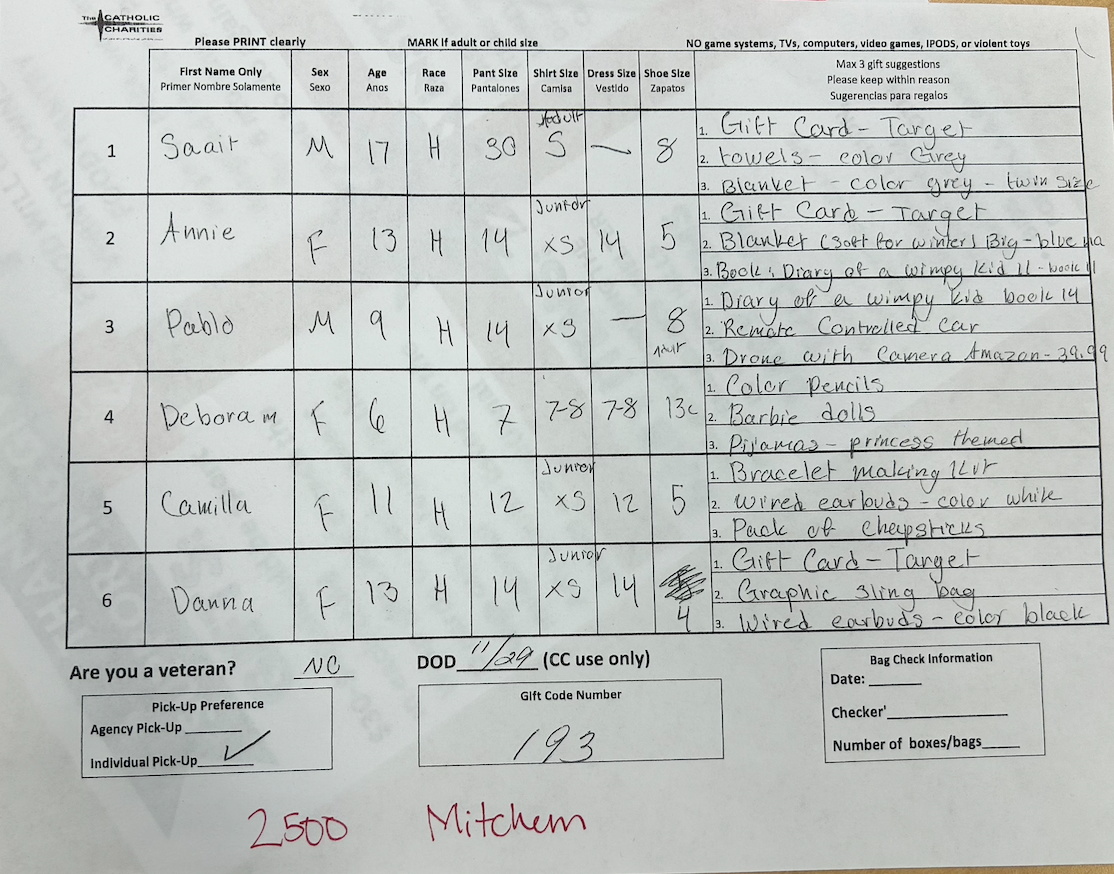 The CATHOLIC
CHARITIES
Please PRINT clearly MARK if adult or child size NO game systems, TVs, computers, video games, IPODS, or violent toys
First Name Only Sex Age Race Pant Size Shirt Size Dress Size Shoe Size Max 3 gift suggestions
Primer Nombre Solamente Sexo Anos Raza Pantalones Camisa Vestido Zapatos Please keep within reason
Sugerencias para regalos
Adult 1. Gift Card - Target
1 Saait M 17 H 30 S — 8 2. towels - color Grey
3. Blanket - color grey - twin size
Junior 1. Gift Card - Target
2 Annie F 13 H 14 XS 14 5 2. Blanket (soft for winter) Big - blue
3. Book: Diary of a wimpy kid 11 - book 11
Junior 1. Diary of a wimpy kid book 14
3 Pablo M 9 H 14 XS — 8 2. Remote Controlled Car
Adult 3. Drone with Camera Amazon - 39.99
1. Color pencils
4 Deboram F 6 H 7 7-8 7-8 13c 2. Barbie dolls
3. Pijamas - princess themed
Junior 1. Bracelet making kit
5 Camilla F 11 H 12 XS 12 5 2. Wired earbuds - color white
3. Pack of chapsticks
Junior 1. Gift Card - Target
6 Danna F 13 H 14 XS 14 2. Graphic sling bag
4 3. Wired earbuds - color black
Are you a veteran? NO DOD 11/29 (CC use only)
Bag Check Information
Pick-Up Preference Gift Code Number Date:
Agency Pick-Up
Checker'
Individual Pick-Up ✓ 193 Number of boxes/bags
2500 Mitchem